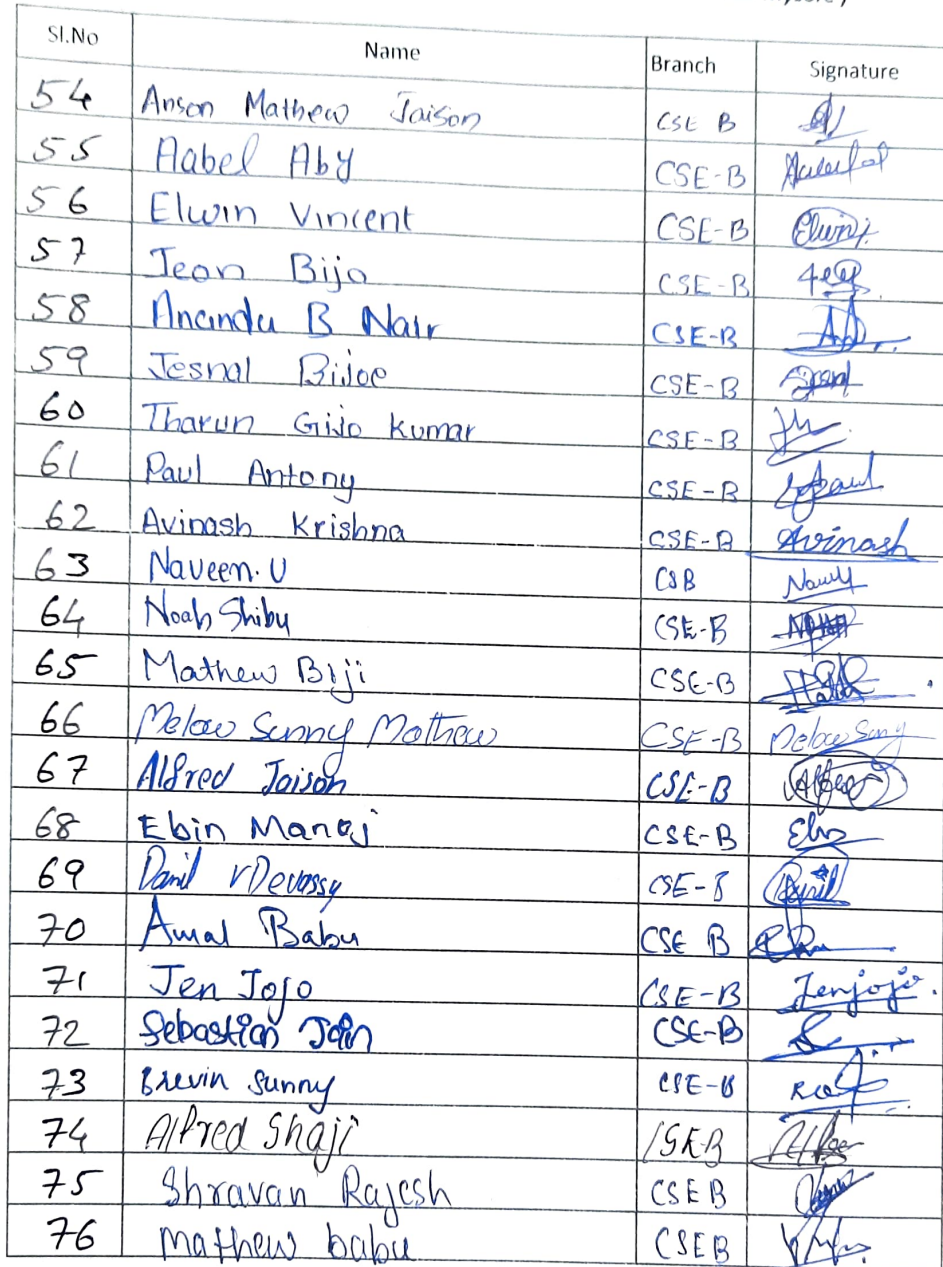 Sl.No Name Branch Signature
54 Anson Mathew Jaison CSE B
55 Aabel Aby CSE-B
56 Elwin Vincent CSE-B Elwin
57 Jeon Bijo CSE-B
58 Anandu B Nair CSE-B
59 Jesnal Bijoe CSE-B
60 Tharun Gijo Kumar CSE-B
61 Paul Antony CSE-B Paul
62 Avinash Krishna CSE-B Avinash
63 Naveen. U CSB
64 Noah Shibu CSE-B
65 Mathew Biji CSE-B
66 Melow Sunny Mathew CSE-B Melow Sunny
67 Alfred Jaison CSE-B
68 Ebin Manoj CSE-B
69 Danil V Devassy CSE-B
70 Amal Babu CSE B
71 Jen Jojo CSE-B Jenjojo.
72 Sebastian Join CSE-B
73 Brevin Sunny CSE-B
74 Alfred Shaji
75 Shravan Rajesh CSE B
76 mathew babu CSE B